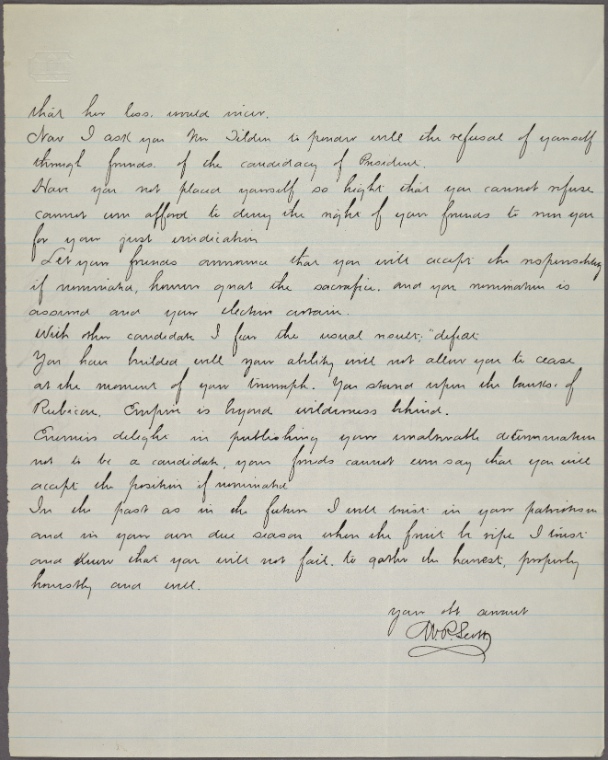 that her loss. would incur.
Now I ask you Mr Tilden to ponder well the refusal of yourself
through friends. of the candidacy of President.
Have you not placed yourself so hight that you cannot refuse
cannot even afford to deny the right of your friends to run you
for your just vindication
Let your friends announce that you will accept the responsibility
if nominated, however great the sacrafice. and your nomination is
assured and your election certain.
With other candidate I fear the usual result; "defeat
You have builded well your ability will not allow you to cease
at the moment of your triumph. You stand upon the banks. of
Rubicon, Empire is beyond wilderness behind.
Enemies delight in publishing your unalterable determination
not to be a candidate, your friends cannot even say that you will
accept the position if nominated
In the past as in the future I will trust in your patriotism
and in your own due season when the fruit be ripe I trust
and know that you will not fail. to gather the harvest, properly
honestly and well.
your obt servant
W.P. Scott